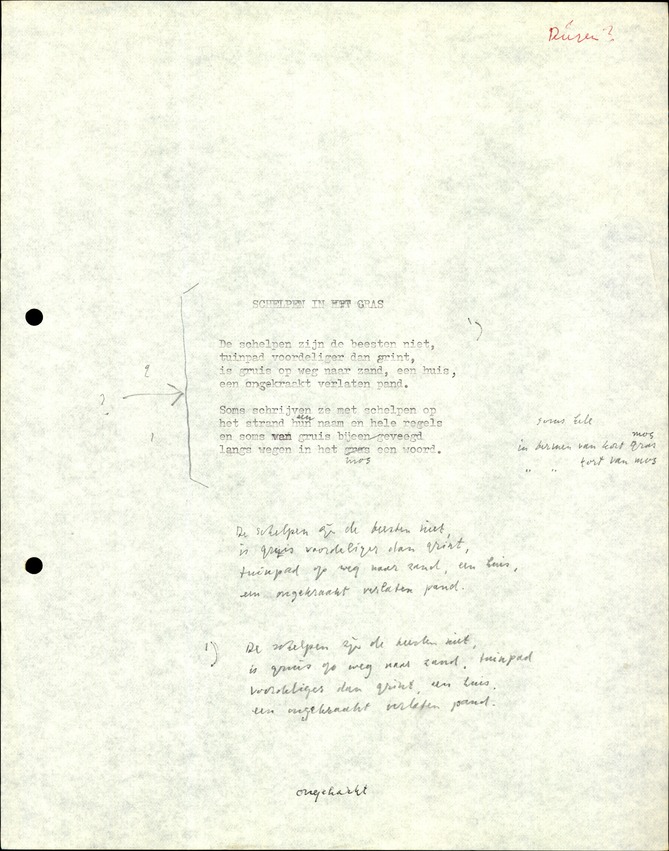 Duizen?
SCHELPEN IN HET GRAS
1)
De schelpen zijn de beesten niet,
tuinpad voordeliger dan grint,
is gruis op weg naar zand, een huis,
een ongekraakt verlaten pand.
2
?
1
Soms schrijven ze met schelpen op
een
het strand hun naam en hele regels
en soms van gruis bijeen geveegd
langs wegen in het gras een woord.
mos
soms
mos
in bermen van kort gras
" " kort van mos
De schelpen zijn de beesten niet,
is gruis voordeliger dan grint,
tuinpad op weg naar zand, een huis,
een ongekraakt verlaten pand.
1)
De schelpen zijn de beesten niet,
is gruis op weg naar zand, tuinpad
voordeliger dan grint, een huis.
een ongekraakt verlaten pand.